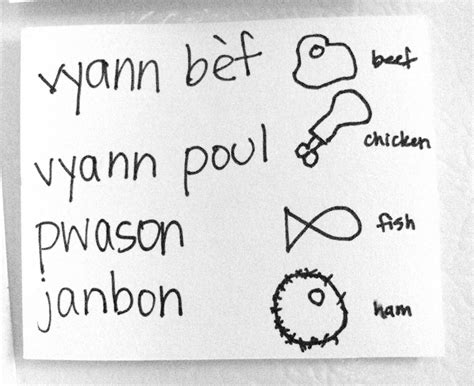 vyann bèf beef
vyann poul chicken
pwason fish
janbon ham